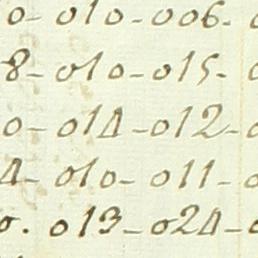 0- 010- 006-
8- 010- 015-
0- 014- 012-
4- 010- 011-
0. 013- 024-